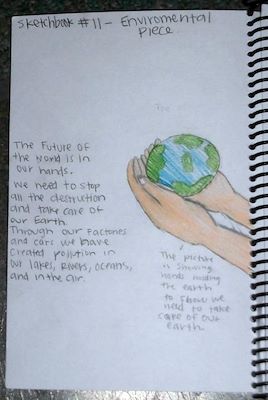 Sketchbook #11 - Enviromental
Piece.
The
The Future of
the world is in
our hands.
We need to stop
all the destruction
and take care of
our Earth.
Through our factories
and cars we have
created pollution in
our lakes, rivers, oceans,
and in the air.
The picture
is showing
hands holding
the earth
to show we
need to take
care of our
earth.